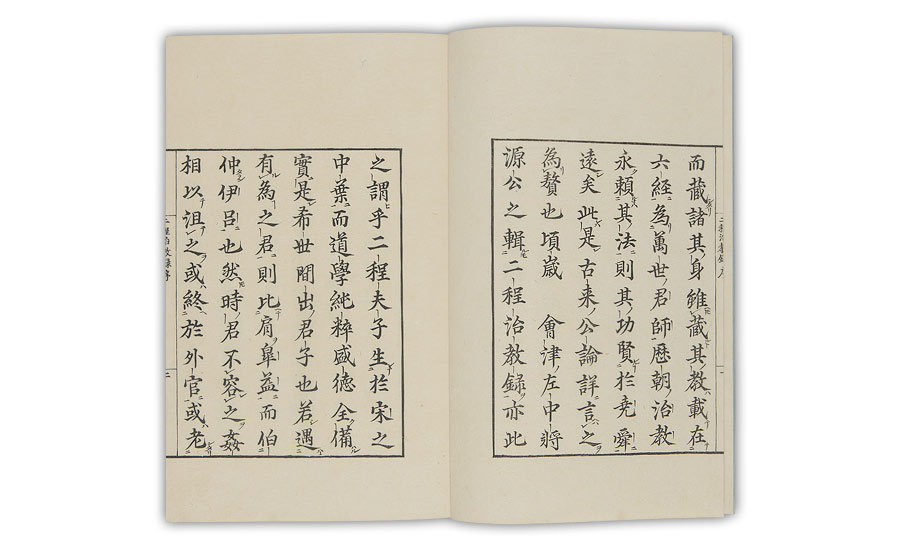 而蔵諸其身雖蔵其教載在
六経為萬世君師歴朝治教
永頼其法則其功賢於堯舜
遠矣此是古来公論詳言之
為贅也頃歳　會津左中將
源公之輯二程治教録亦此
之謂乎二程夫子生於宋之
中葉而道學純粹盛德全備
實是希世間出君子也若遇
有為之君則比肩皐益而伯
仲伊呂也然時君不容之姦
相以沮之或終於外官或老